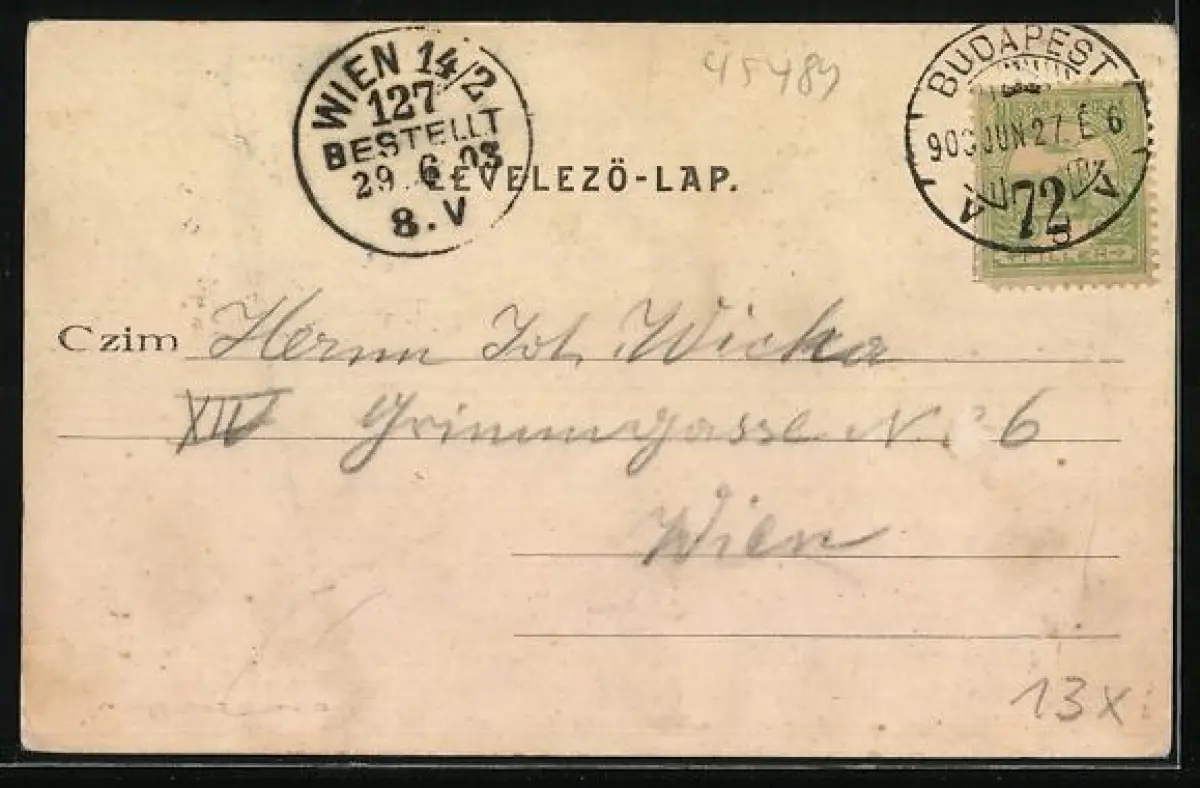 45489
WIEN 14/2
127
BESTELLT
29 6 03
8.V
BUDAPEST
903 JUN 27 E 6
72
FILLER
LEVELEZÖ-LAP.
Czim Herrn Joh. Wicka
XIV Grimmgasse N. 6
Wien
13x